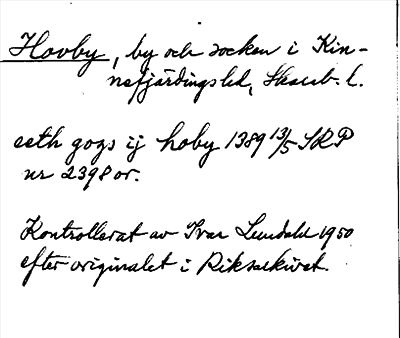 Hovby, by och socken i Kin-
nefjärdings hd, Skarab. l.
eeth gogs ij hoby 1389 13/5 SRP
nr 2398 or.
Kontrollerat av Ivar Lundahl 1950
efter originalet i Riksarkivet.